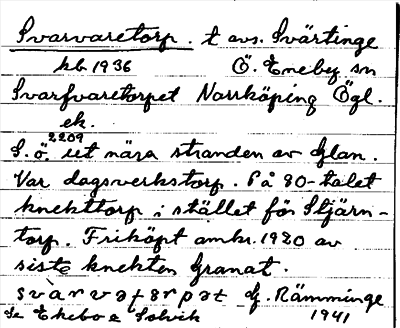 Svarvaretorp. t avs. Svärtinge
kb 1936 Ö. Eneby sn
Svarfvaretorpet Norrköping Ögl.
ek.
2209
S.ö. ut nära stranden av Glan.
Var dagsverkstorp. På 80-talet
knekttorp i stället för Stjärn-
torp. Friköpt omkr. 1920 av
siste knekten Granat.
svàrvətòrpət G. Rämminge
Se Ekebo o Solvik 1941